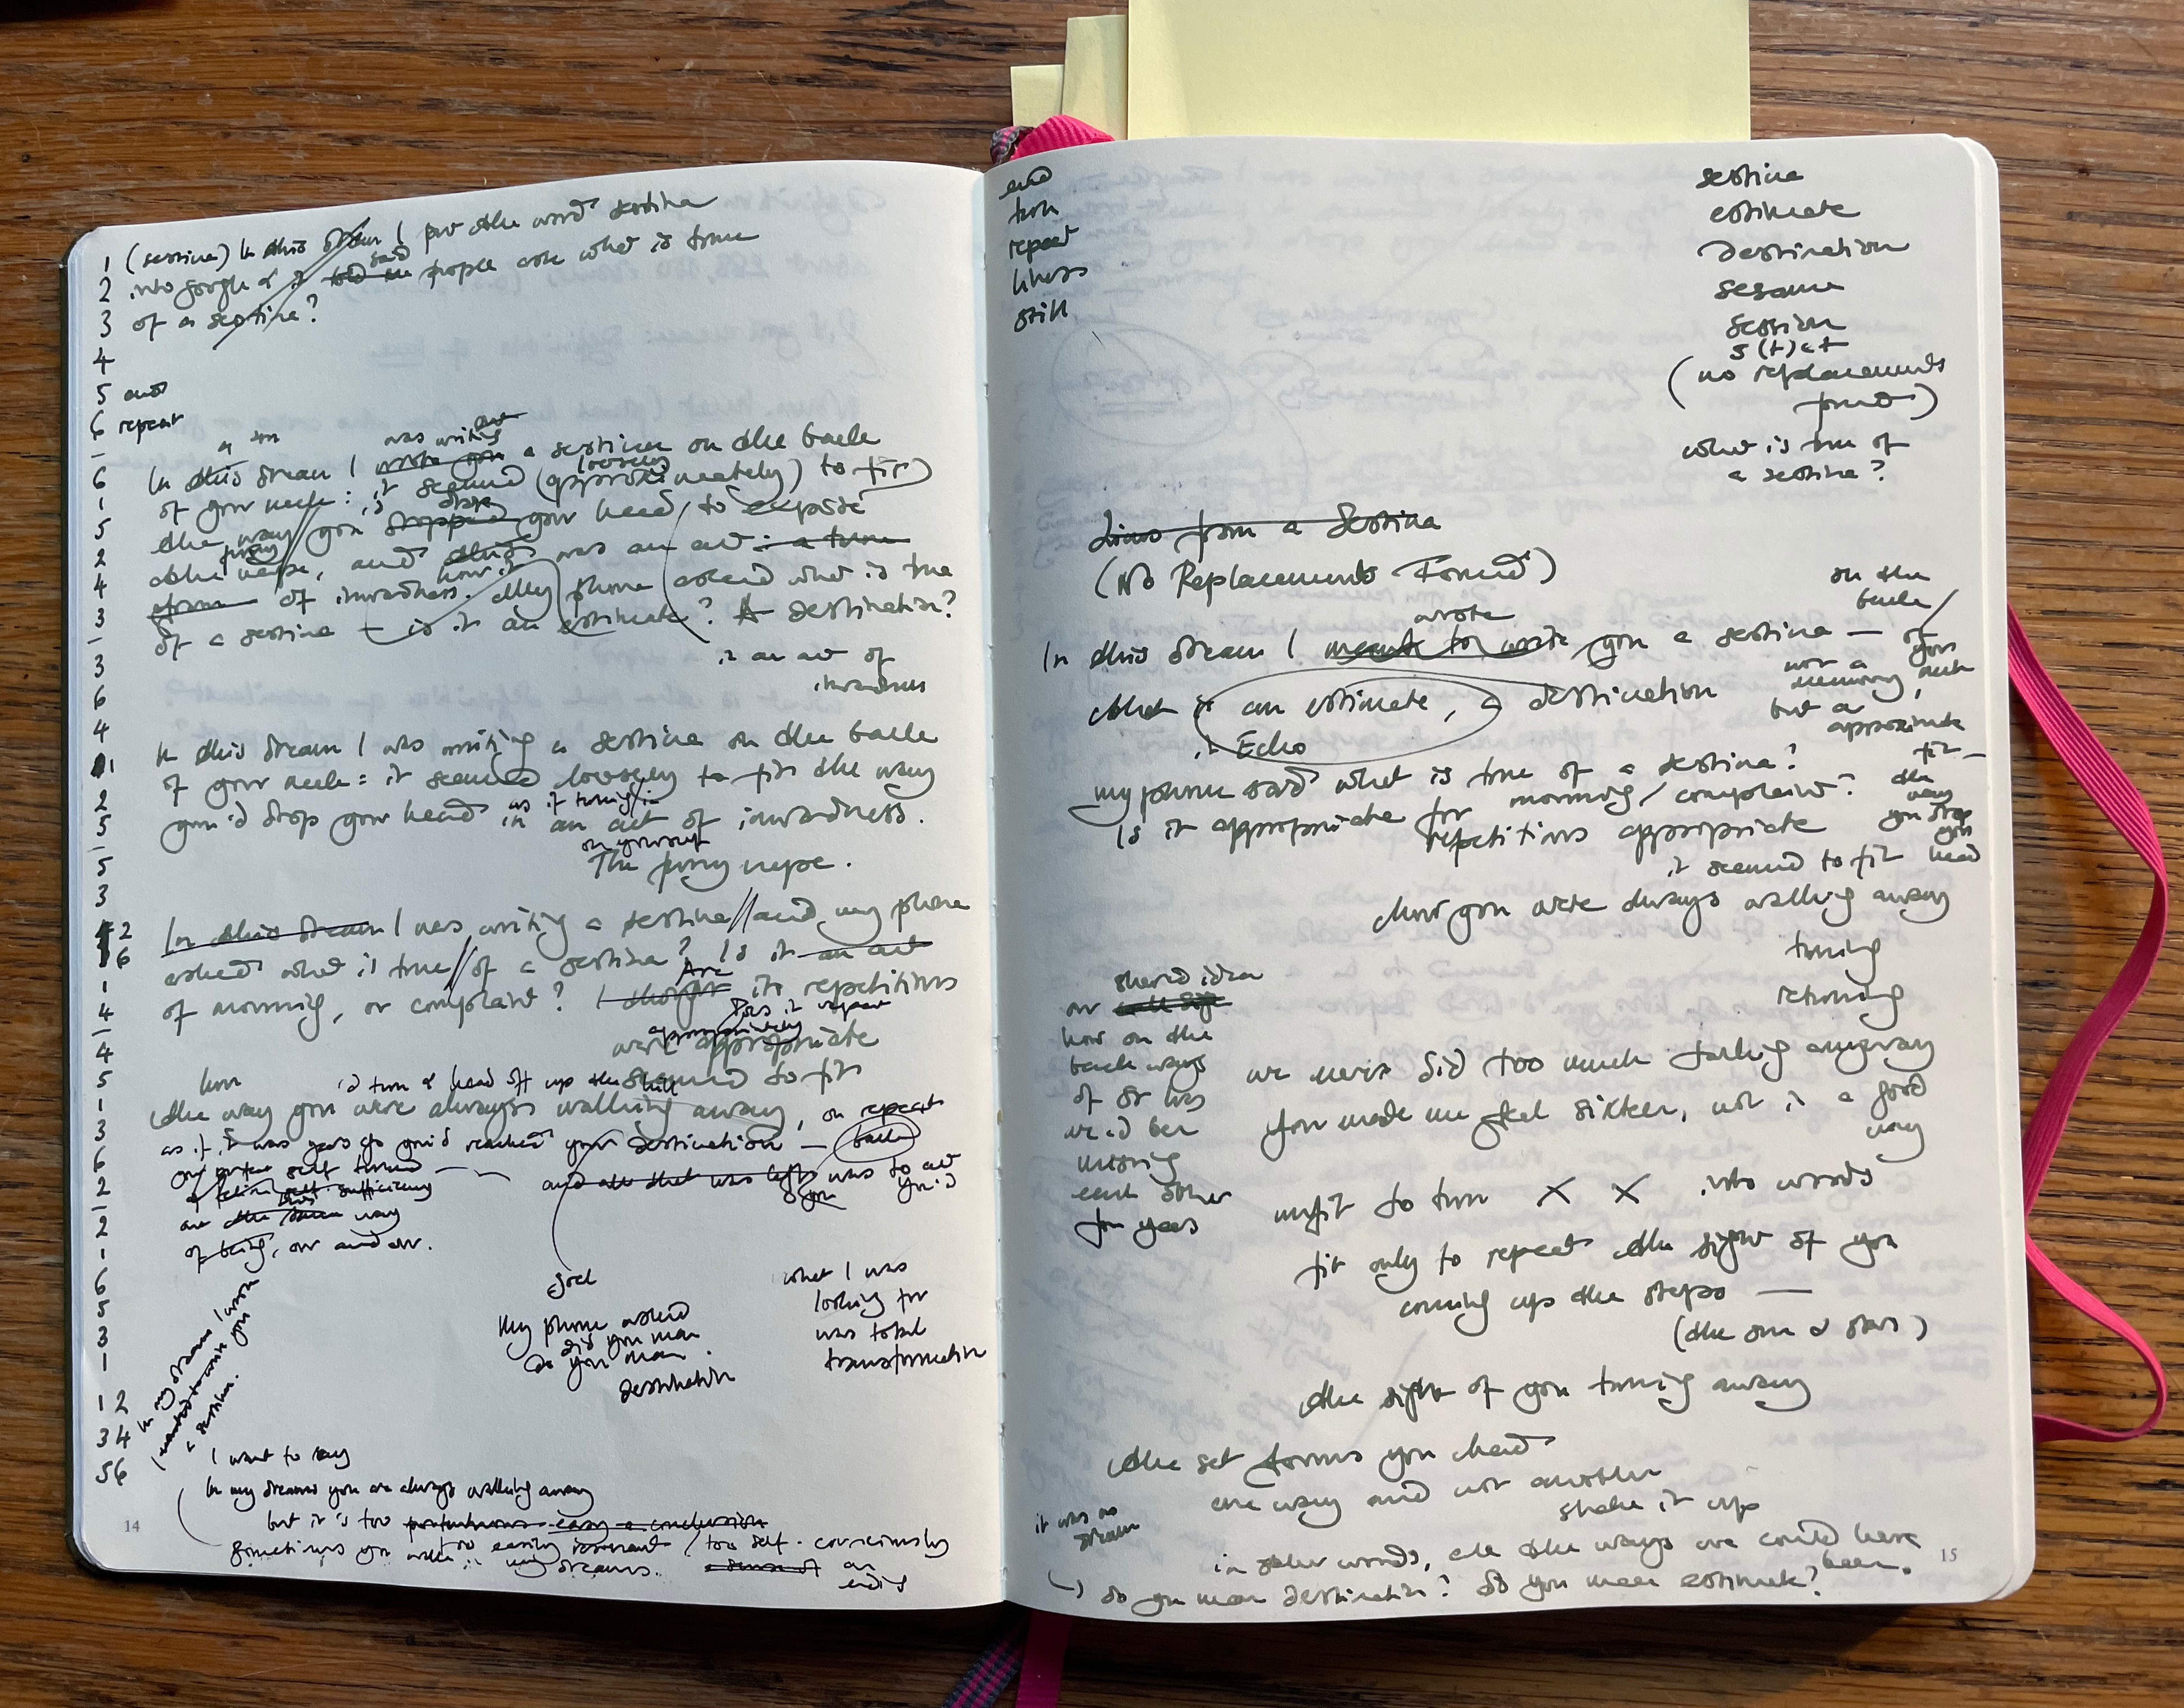 1 (sestina) In this dream I put the word sestina
2 into google & it said told me people ask what is true
3 of a sestina?
4
5 and
6 repeat
a
was writing
6 In this dream I wrote you a sestina on the back
loosely
1 of your neck: it seemed (approximately) to fit
5 the way you dropped your head, to expose
2 the nape, and this was an act: a turn
how it
4 of inwardness. My phone asked what is true
3 of a sestina – is it an estimate? A destination?
3 is an act of
6 inwardness
4
1 In this dream I was writing a sestina on the back
2 of your neck: it seemed loosely to fit the way
5 you'd drop your head in an act of inwardness.
as if turning in
on yourself
5 The furry nape.
3
2 In this dream I was writing a sestina // and my phone
6 asked what is true // of a sestina? Is it an act
1 of morning, or complaint? I thought its repetitions
Are
4 Does it repeat
appropriately
4 were appropriate
5 seemed to fit
1 the way you were always walking away, on repeat
3 as if it was years ago you'd reached your destination — back
6 self turned —
and all that was left was to act
2
2 way
1 of being, over and over.
6
5
3
1
12
34
56
In my dreams I
wanted to write you
a sestina.
My phone asked
did you mean
do you mean
destination
what I was
looking for
was total
transformation
I want to say
In my dreams you are always walking away
but it is too easy a conclusion
too easily / too self-consciously
Sometimes you in my dreams. an
14
end
turn
repeat
likeness
still
sestina
estimate
destination
sesame
session
s(t)et
(no replacements
found)
what is true of
a sestina?
Lines from a Sestina
(No Replacements Found)
wrote
In this dream I meant to write you a sestina —
on the
back /
of
your
neck,
not a
memory
but a
approximate
fit —
the
way
you drop
your
head
that is an estimate, a destination
Echo
my phone said what is true of a sestina?
Is it appropriate for morning / complaint?
repetitions appropriate
it seemed to fit
how you were always walking away
turning
returning
shared idea
or
how on the
back ways
of
we'd been
missing
each other
for years
we never did too much talking anyway
You made me feel sixteen, not in a good
way
unfit to turn X X into words
fit only to repeat the sight of you
coming up the steps —
(the sun & stars)
the sight of you turning away
the set forms you head
one way and not another
shake it up
it was no
dream
in other words, all the ways we could have
been.
do you mean destination? do you mean estimate?
15